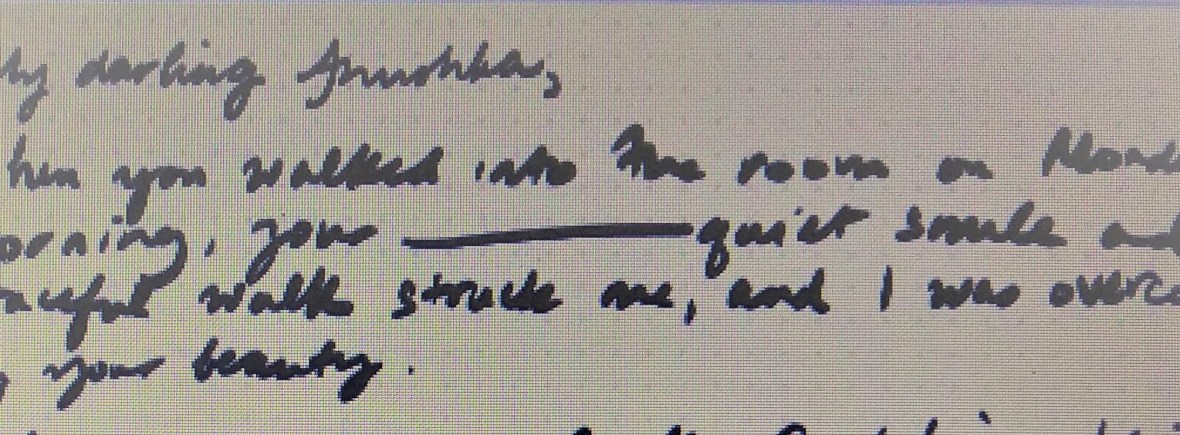 My darling Anushka,
hen you walked into the room on Mond
orning, your quiet smile and
aceful walk struck me, and I was overc
your beauty.